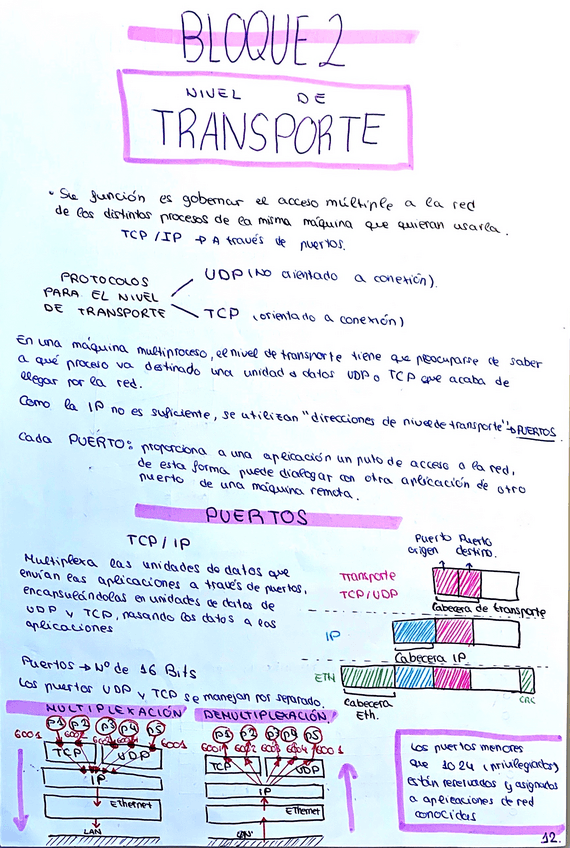 BLOQUE 2
NIVEL DE
TRANSPORTE
• Su función es gobernar el acceso múltiple a la red
de los distintos procesos de la misma máquina que quieran usarla.
TCP/IP → A través de puertos.
PROTOCOLOS
PARA EL NIVEL
DE TRANSPORTE
UDP (No orientado a conexión).
TCP (orientado a conexión)
En una máquina multiproceso, el nivel de transporte tiene que preocuparse de saber
a qué proceso va destinado una unidad de datos UDP o TCP que acaba de
llegar por la red.
Como la IP no es suficiente, se utilizan "direcciones de nivel de transporte" → PUERTOS
Cada PUERTO: proporciona a una aplicación un puto de acceso a la red,
de esta forma puede dialogar con otra aplicación de otro
puerto de una máquina remota.
PUERTOS
TCP / IP
Multiplexa las unidades de datos que
envían las aplicaciones a través de puertos,
encapsulándolas en unidades de datos de
UDP y TCP, pasando los datos a las
aplicaciones
Puerto Puerto
origen destino.
Transporte
TCP/UDP
Cabecera de transporte
IP
Cabecera IP
ETH
Cabecera
Eth.
CRC
Puertos → Nº de 16 Bits
Los puertos UDP y TCP se manejan por separado.
MULTIPLEXACIÓN
DEMULTIPLEXACIÓN
P1 P2 P3 P4 P5
6001
6001
TCP UDP
IP
Ethernet
LAN
P1 P2 P3 P4 P5
6001
TCP UDP
IP
Ethernet
LAN
Los puertos menores
que 1024 (privilegiados)
están reservados y asignados
a aplicaciones de red
conocidas
12.